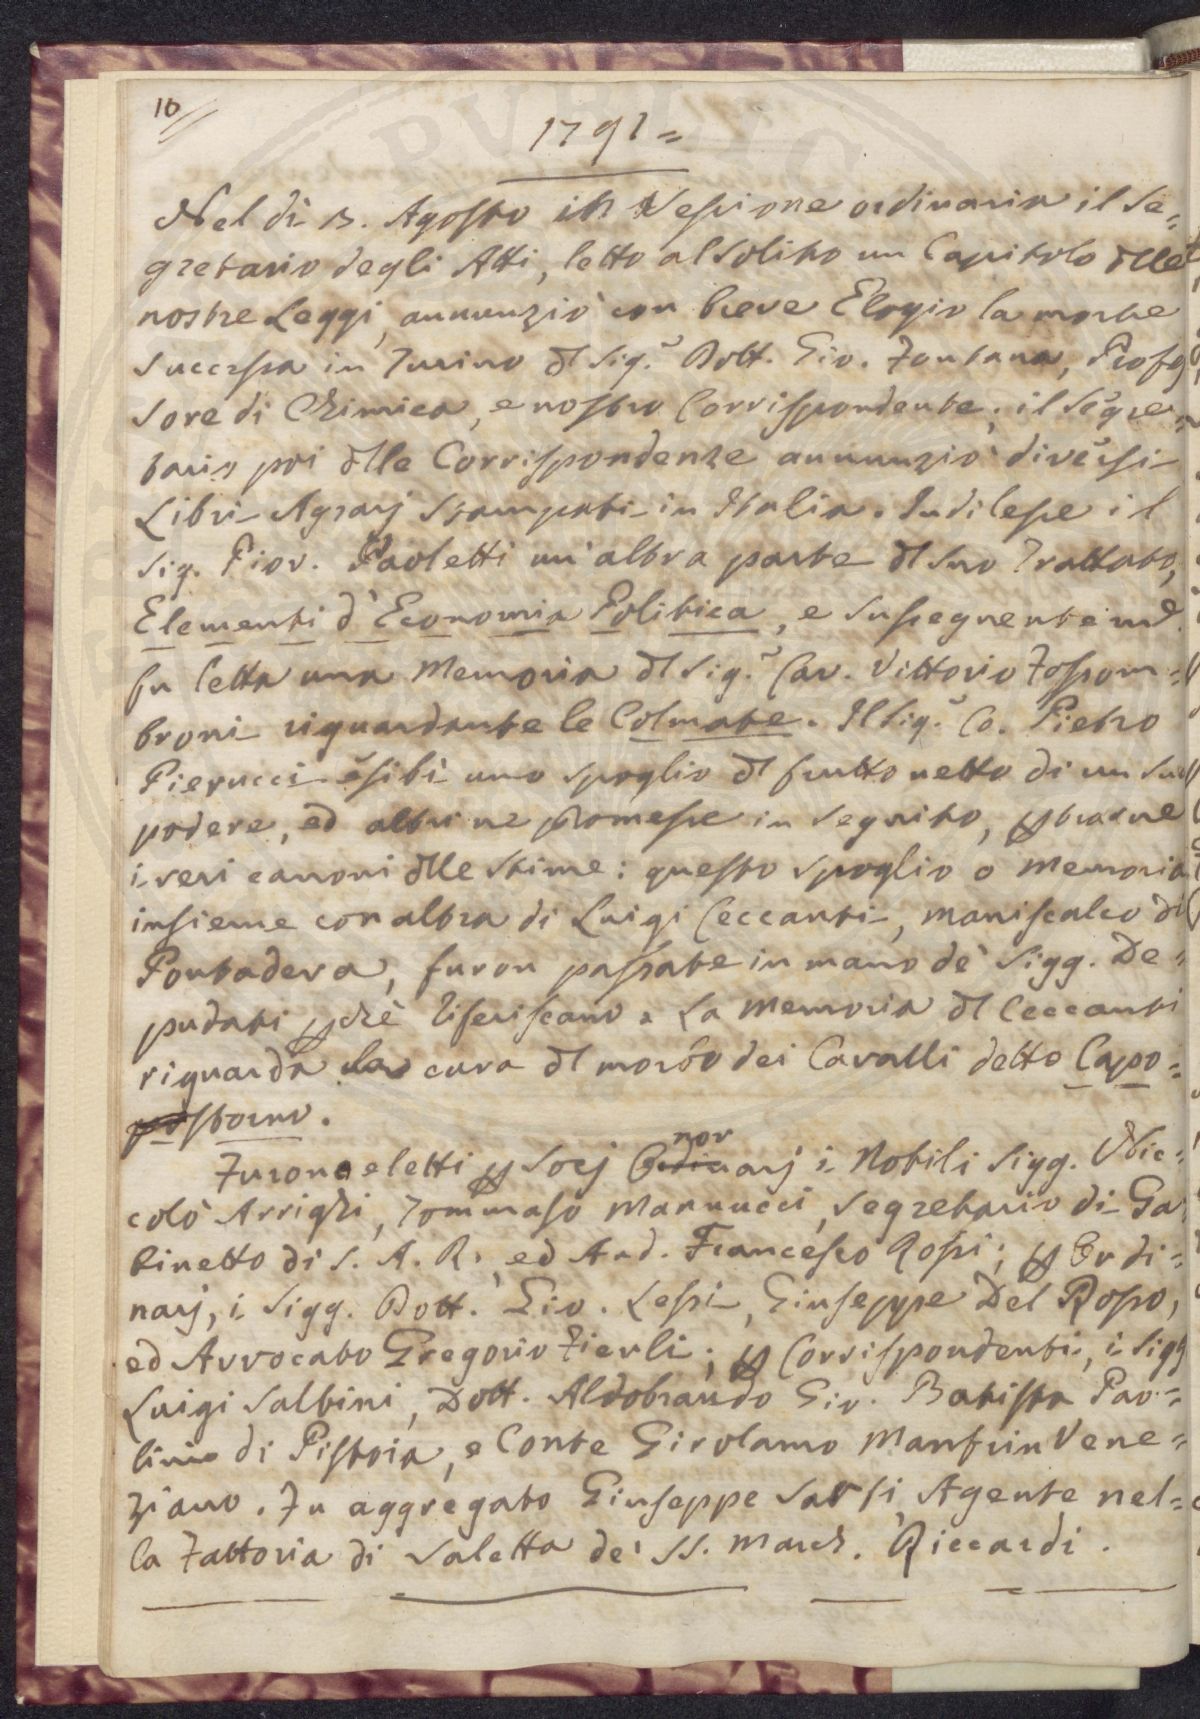 10
1791=
Nel dì 3. Agosto in Sessione ordinaria il Se=
gretario degli Atti, letto al solito un Capitolo dlle
nostre Leggi, annunziò con breve Elogio la morte
successa in Turino dl Sig.r Dott. Gio. Fontana, Profes
sore di Chimica, e nostro Corrispondente; il Segre=
tario poi dlle Corrispondenze annunziò diversi
Libri Agrarj stampati in Italia. Indi lesse il
Sig. Piov. Paoletti un'altra parte dl suo Trattato,
Elementi d'Economia Politica, e susseguenteme.
fu letta una Memoria dl Sig.r Cav. Vittorio Fossom=
broni riguardante le Colmate. Il Sig.r Co. Pietro
Pierucci esibì uno spoglio dl frutto netto di un suo
podere, ed altri ne promesse in seguito, p trarne
i veri canoni dlle stime: questo spoglio o Memoria
insieme con altra di Luigi Ceccanti, maniscalco di
Pontadera, furon passate in mano de' Sigg. De=
putati pchè riferiscano. La Memoria dl Ceccanti
riguarda la cura dl morbo dei Cavalli detto Capo=
storno.
Furono eletti p Socj Onorarj i Nobili Sigg. Nic=
colò Arrighi, Tommaso Mannucci, Segretario di Ga
binetto di S. A. R., ed And. Francesco Rossi; p Ordi=
narj, i Sigg. Dott. Gio. Lessi, Giuseppe Del Rosso,
ed Avvocato Gregorio Fierli; p Corrispondenti, i Sigg
Luigi Salbini, Dott. Aldobrando Gio. Batista Pao=
lini di Pistoia, e Conte Girolamo Manfrin Vene=
ziano. Fu aggregato Giuseppe Sarsi, Agente nel=
la Fattoria di Saletta de' SS. March. Riccardi.